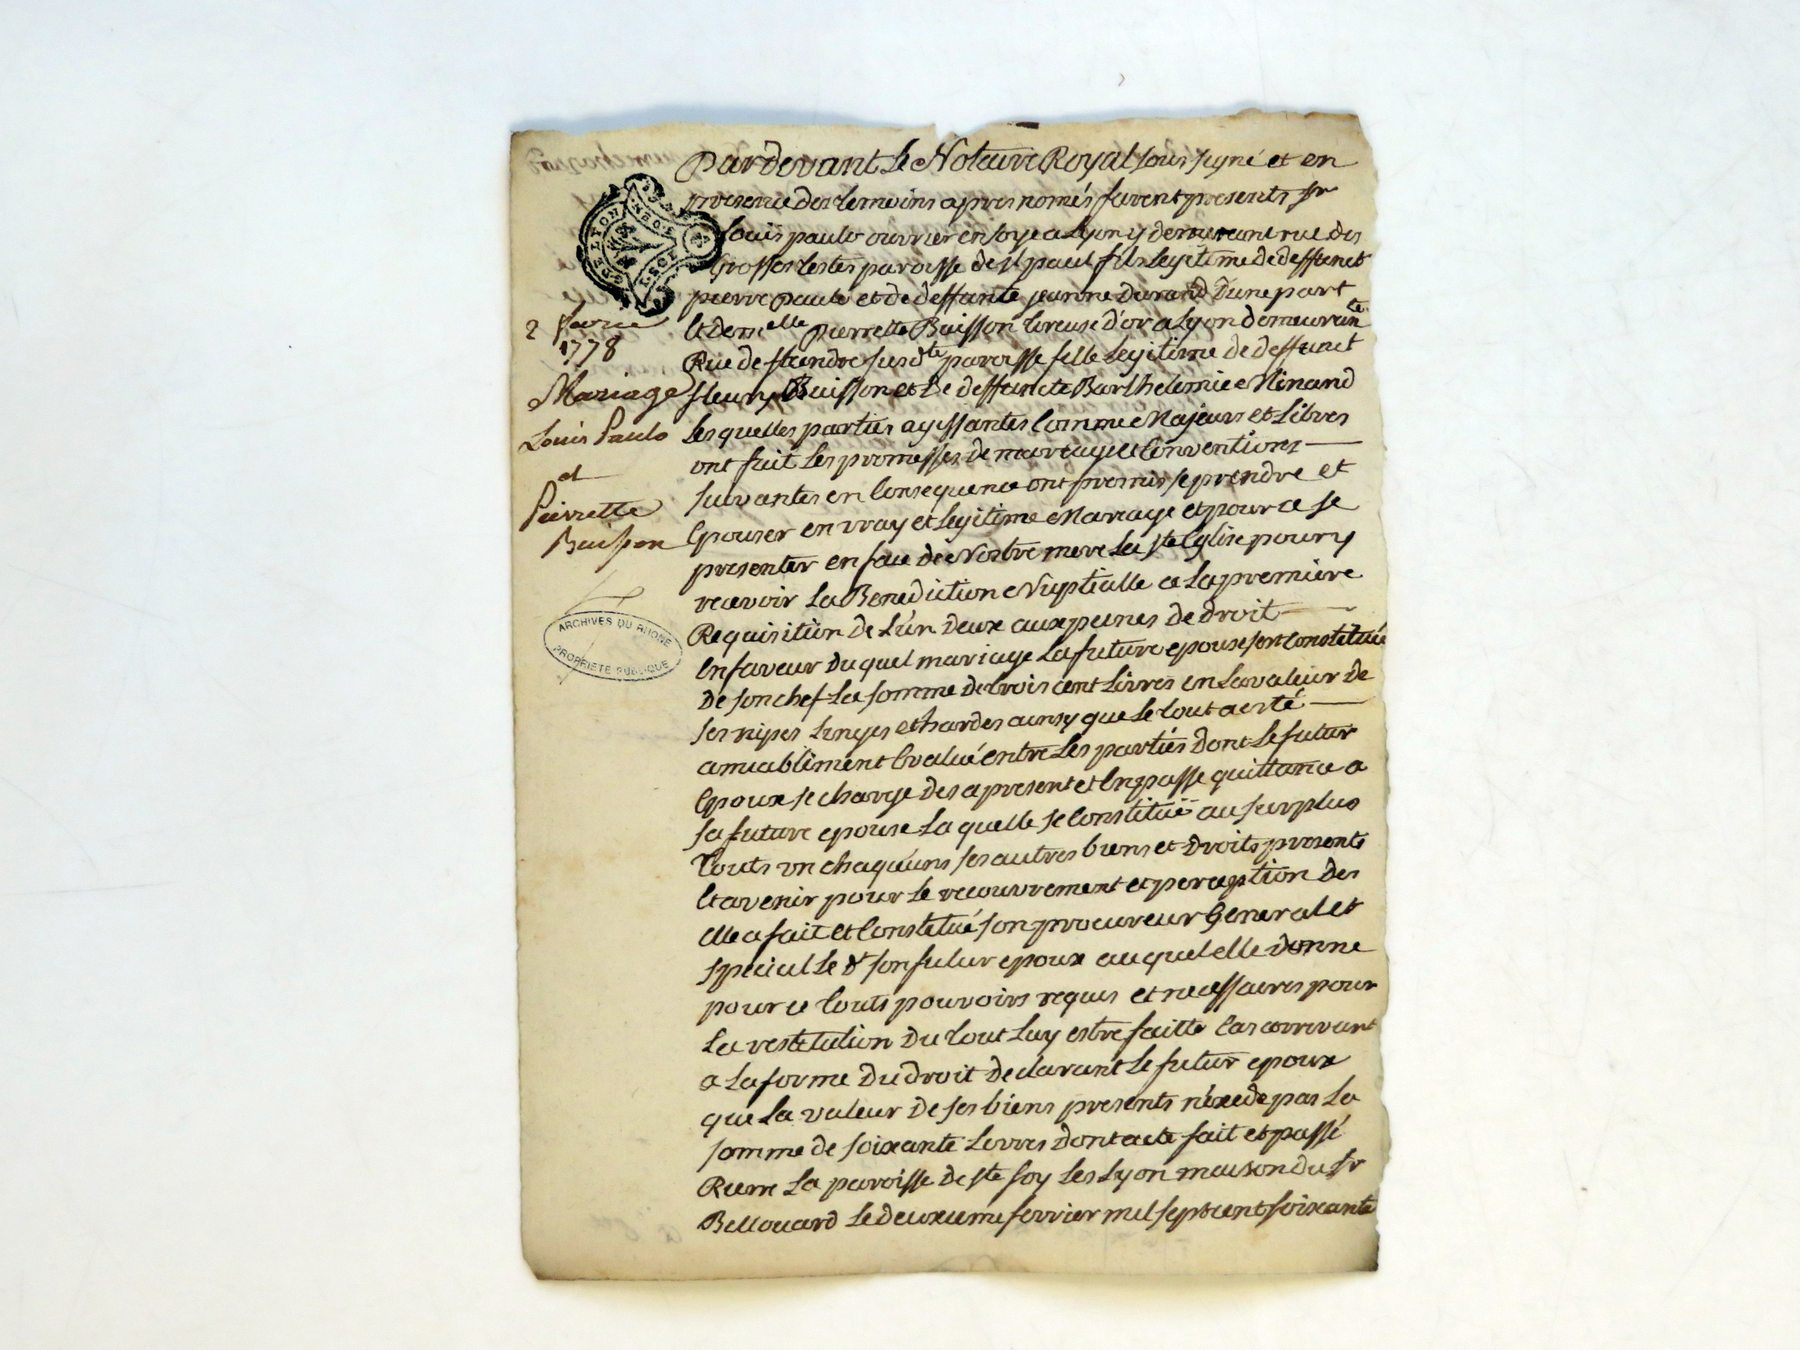 Pardevant Le Notaire Royal sous signé et en
presence des temoins apres només furent presents sr
Louis paulo ouvrier en soye a Lyon y demeurant rue des
Grosses testes paroisse de st paul fils Legitime de deffunct
pierre paulo et de deffunte jeanne durand dune part
Et demelle pierrette Buisson tireuse d'or a Lyon demeurante
Rue de flandre susdte paroisse fille Legitime de deffunct
fleury Buisson et De deffuncte Barthelemie Ninand
Lesquelles parties agissantes Comme Majeurs et Libres
ont fait Les promesses de mariage et Conventions
suivantes en Consequence ont promis se prendre et
Epouser en vray et Legitime Mariage et pour ce se
presenter en face de Nostre mere La ste Eglise pour y
recevoir La Benediction Nuptialle a La premiere
Requisition de L'un deux aux peines de droit
En faveur du quel mariage La future epouse sest Constituée
De son chef La somme de trois cent Livres en La valeur de
ses nipes Linges et hardes ainsy que Le tout a esté
amiablement Evalué entre Les parties dont Le futur
Epoux se charge des a present et En passe quittance a
sa future epouse La quelle se Constitue au surplus
touts un chaquuns ses autres biens et droits presents
Et avenir pour Le recouvrement et perception des
Elle a fait et Constitué son procureur General et
special Le dt son futur epoux au quel elle donne
pour ce touts pouvoirs requis et necessaires pour
La restitution du tout Luy estre faitte Cas arrivant
a La forme du droit declarant Le futur epoux
que La valeur de ses biens presents n'exede pas La
somme de soixante Livres dont acte fait et passé
Riere La paroisse de ste foy Les Lyon maison du sr
Bellouard Le deuxieme fevrier mil sept cent soixante
GDE LYON
2 fevrier
1778
Mariage
Louis Paulo
et
Pierrette
Buisson
ARCHIVES DU RHONE
PROPRIETE PUBLIQUE